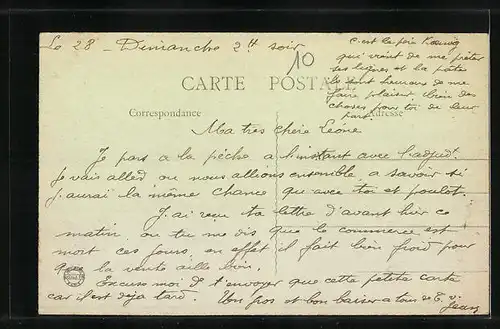 Le 28 - Dimanche 2h soir
10
c'est le père Kœnig
qui vient de me prêter
ses lignes et la pâte
ils sont heureux de me
faire plaisir bien des
choses pour toi de leur
part.
CARTE POSTALE
Correspondance
Adresse
Ma très chère Léone
Je pars a la pêche a l'instant avec l'adjudt.
Je vais aller ou nous allions ensemble a savoir si
j'aurai la même chance que avec toi et poulot.
J'ai reçu ta lettre d'avant hier ce
matin, ou tu me dis que le commerce est
mort ces jours, en effet il fait bien froid pour
que la vente aille bien.
Excuse moi de t'envoyer que cette petite carte
car il est déja tard. Un gros et bon baiser a tous de
Jean